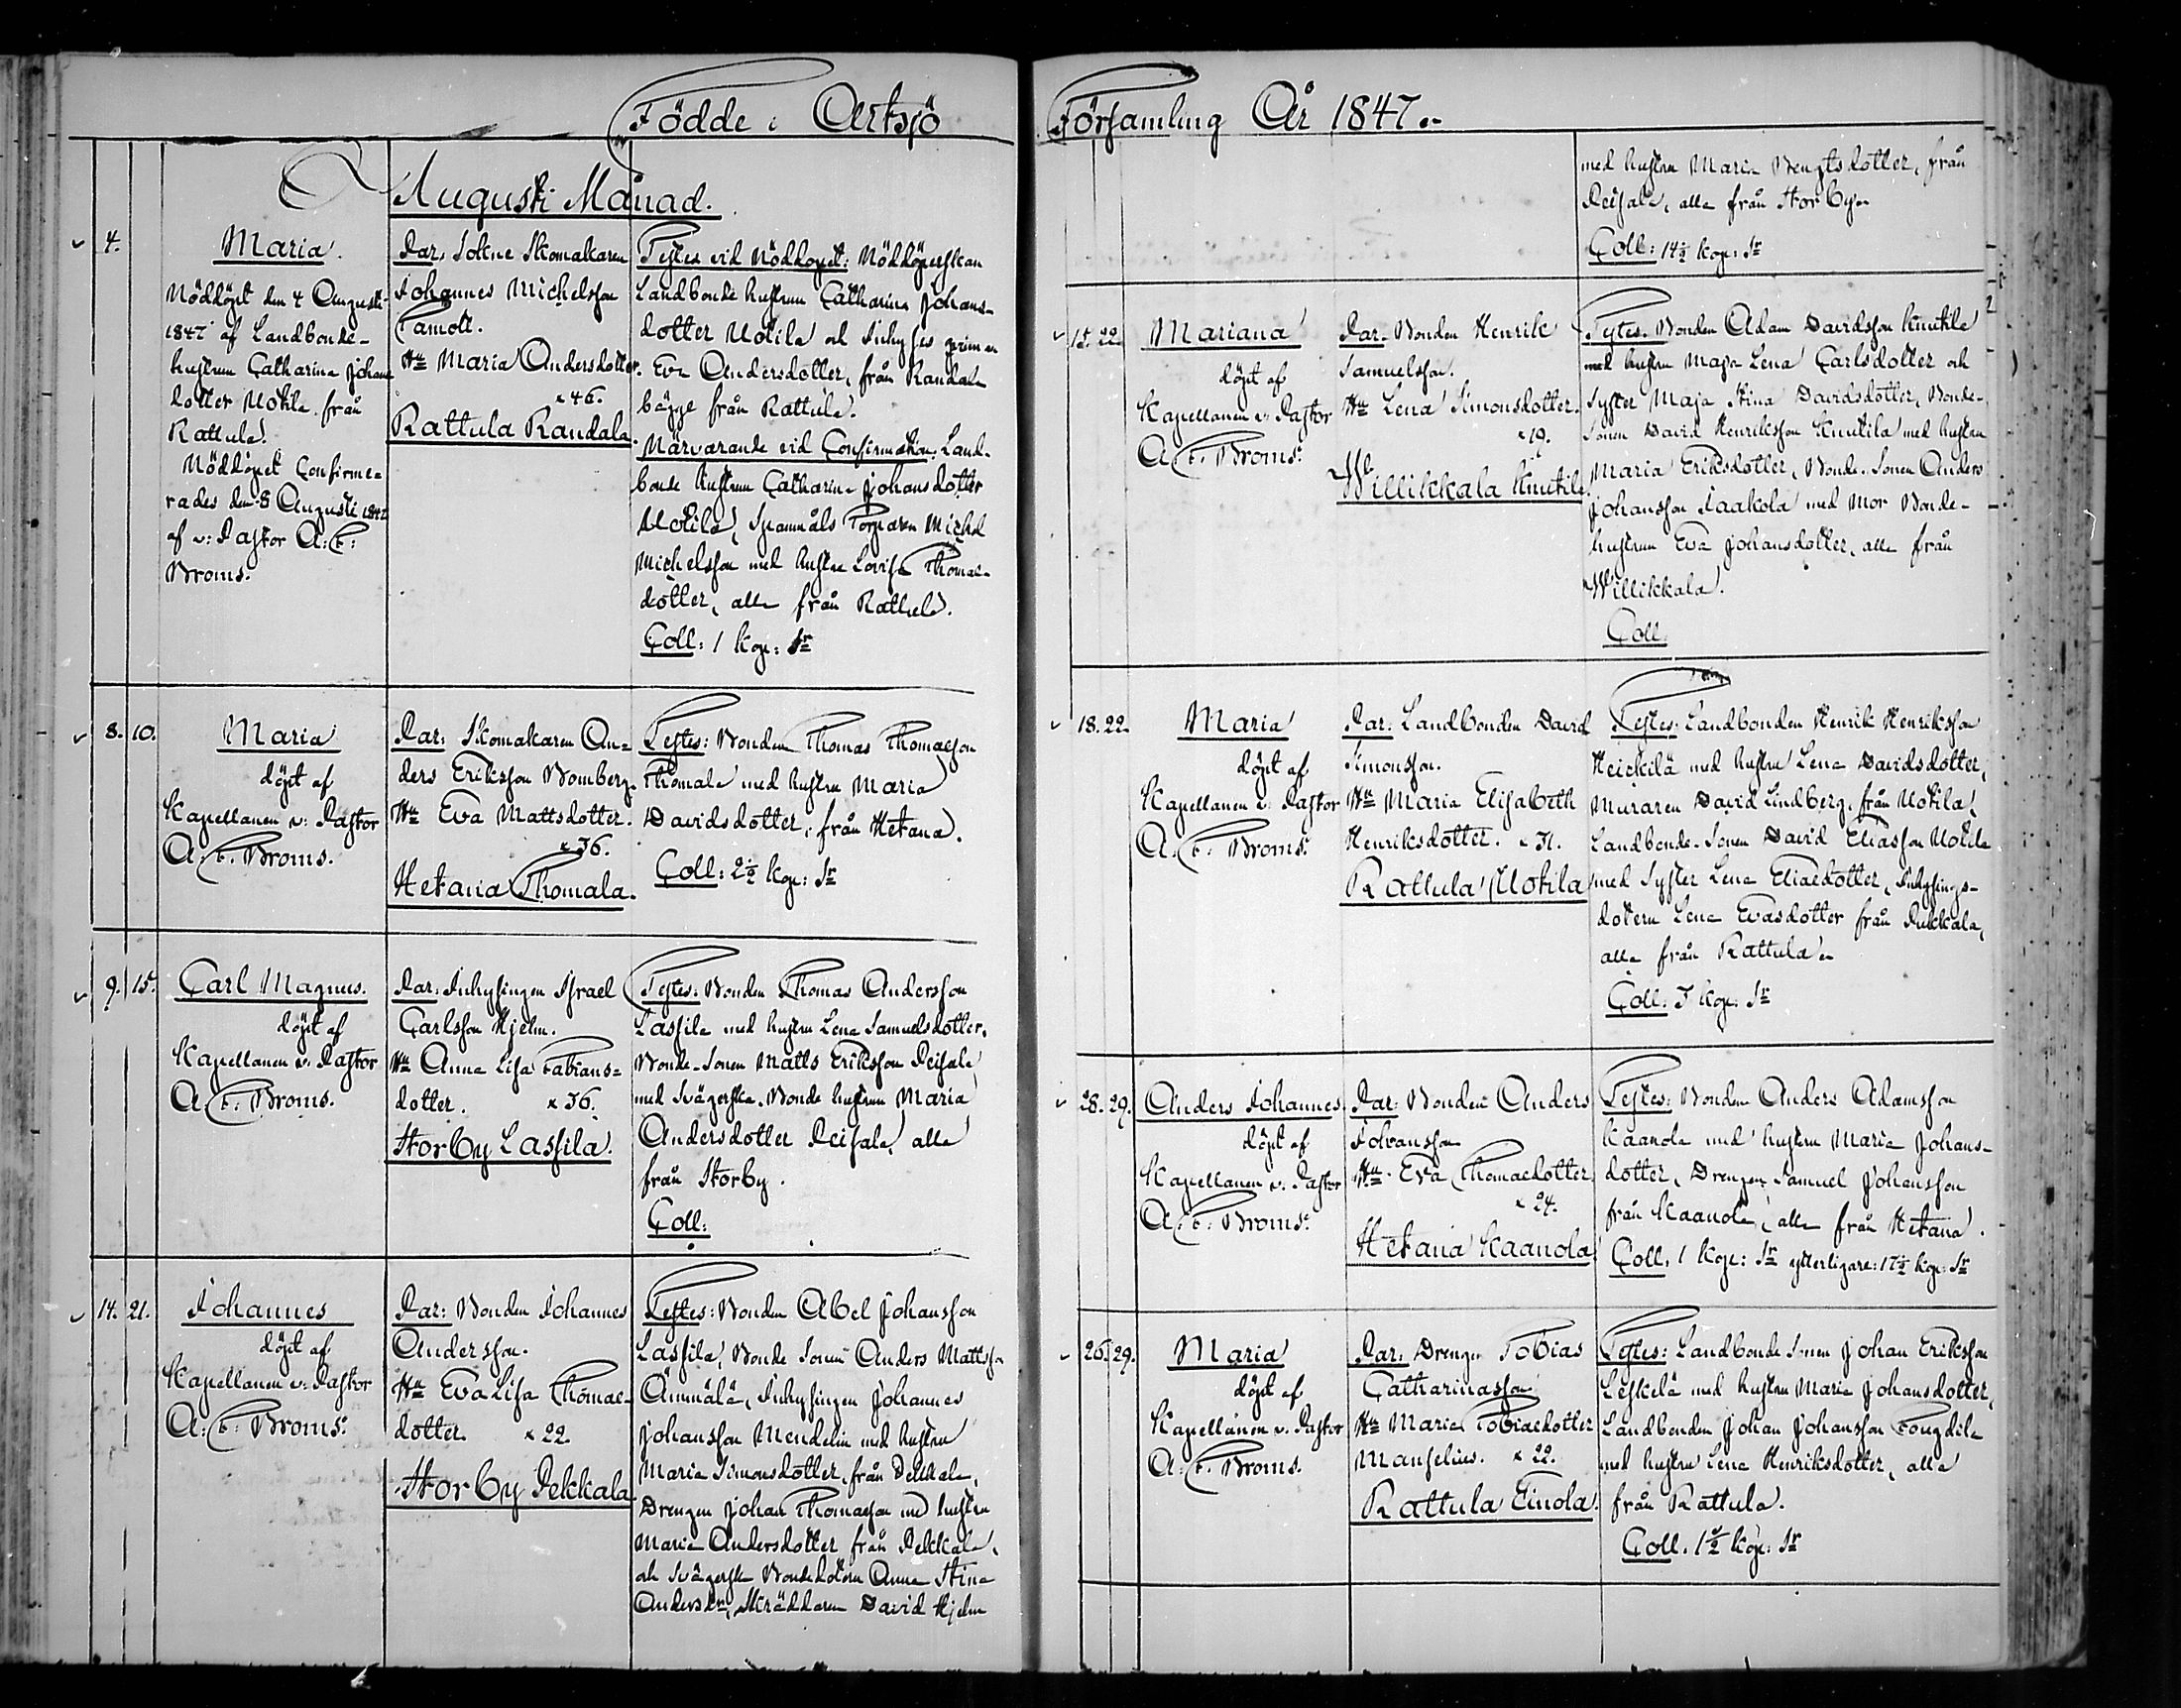 Födde i Artsjö
Augusti Månad.
4.
Maria.
Nöddöpt den 4 Augusti
1847 af Landbonde-
hustrun Catharina Johans
dotter Uotila från
Rattula.
Nöddopet Confirme-
rades den 8 Augusti 1847
af v: Pastor A: F:
Broms.
Par. Sokne Skomakaren
Johannes Michelsson
Hu Maria Andersdotter.
x 46.
Rattula Randala.
Testes vid Nöddopet: Nöddöperskan
Landbonde hustrun Catharina Johans-
dotter Uotila och Inhyses
Eva Andersdotter, från Randala
bägge från Rattula.
Närvarande vid Confirmation: Land-
bonde hustrun Catharina Johansdotter
Uotila, Spannmåls Torparen Michel
Michelsson med hustru Lovisa Thomae-
dotter, alla från Rattula.
Coll: 1 kop: Sr
8. 10.
Maria
döpt af
Kapellanen v: Pastor
A: F: Broms.
Par: Skomakaren An=
ders Eriksson Bomberg.
Hu Eva Mattsdotter.
x 36.
Hetana Thomala.
Testes: Bonden Thomas Thomasson
Thomala med hustru Maria
Davidsdotter, från Hetana.
Coll: 2 1/2 kop: Sr
9. 15.
Carl Magnus.
döpt af
Kapellanen v: Pastor
A: F: Broms.
Par: Inhysingen Israel
Carlsson Hjelm.
Hu Anna Lisa Fabians=
dotter. x 36.
Storby Lassila.
Testes: Bonden Thomas Andersson
Lassila med hustru Lena Samuelsdotter,
Bonde-Sonen Matts Eriksson Peisala
med Svägerska Bonde hustrun Maria
Andersdotter Peisala, alla
från Storby.
Coll:
14. 21.
Johannes
döpt af
Kapellanen v: Pastor
A: F: Broms.
Par: Bonden Johannes
Andersson.
Hu Eva Lisa Thomae-
dotter. x 22.
Storby Pekkala.
Testes: Bonden Abel Johansson
Lassila, Bonde Sonen Anders Mattss
Ämmälä, Inhysingen Johannes
Johansson Mendelin med hustru
Maria Simonsdotter från Pekkala,
Drengen Johan Thomasson med hustru
Maria Andersdotter från Pekkala,
och Svägerska Bondedottern Anna Stina
Andersdr, Skräddaren David Hjelm
Församling År 1847.
med hustru Maria Bengtsdotter, från
Peisala, alla från Storby
Coll: 14 1/2 kop: Sr
15. 22.
Mariana
döpt af
Kapellanen v: Pastor
A: F: Broms.
Par. Bonden Henrik
Samuelsson.
Hu Lena Simonsdotter.
x 19.
Willikkala Knutila
Testes. Bonden Adam Davidsson Knutila
med hustru Maja Lena Carlsdotter och
Syster Maja Stina Davidsdotter, Bonde-
Sonen David Henriksson Knutila med hustru
Maria Eriksdotter, Bonde-Sonen Anders
Johansson Jaakola med Mor Bonde-
hustrun Eva Johansdotter, alla från
Willikkala.
Coll.
18. 22.
Maria
döpt af
Kapellanen v: Pastor
A: F: Broms.
Par: Landbonden David
Simonsson.
Hu Maria Elisabeth
Henriksdotter. x 31.
Rattula Uotila
Testes. Landbonden Henrik Henriksson
Heickilä med hustru Lena Davidsdotter,
Muraren David Lindberg, från Uotila,
Landbonde-Sonen David Eliasson Uotila
med Syster Lena Eliaedotter, Inhysings-
dottern Lena Evasdotter från Pukkala,
alla från Rattula
Coll. 3 kop: Sr
28. 29.
Anders Johannes.
döpt af
Kapellanen v: Pastor
A: F: Broms.
Par: Bonden Anders
Johansson
Hu Eva Thomaedotter
x 24.
Hetana Kaanola
Testes: Bonden Anders Adamsson
Kaanola med hustru Maria Johans-
dotter, Drengen Samuel Johansson
från Kaanola, alla från Hetana.
Coll. 1 kop: Sr ytterligare: 17 1/2 kop: Sr
26. 29.
Maria
döpt af
Kapellanen v: Pastor
A: F: Broms.
Par: Drengen Tobias
Catharinasson
Hu Maria Tobiaedotter
Manselius. x 22.
Rattula Einola.
Testes: Landbonde Sonen Johan Eriksson
Leskelä med hustru Maria Johansdotter,
Landbonden Johan Johansson Fougdila
med hustru Lena Henriksdotter, alla
från Rattula.
Coll. 1 1/2 kop: Sr